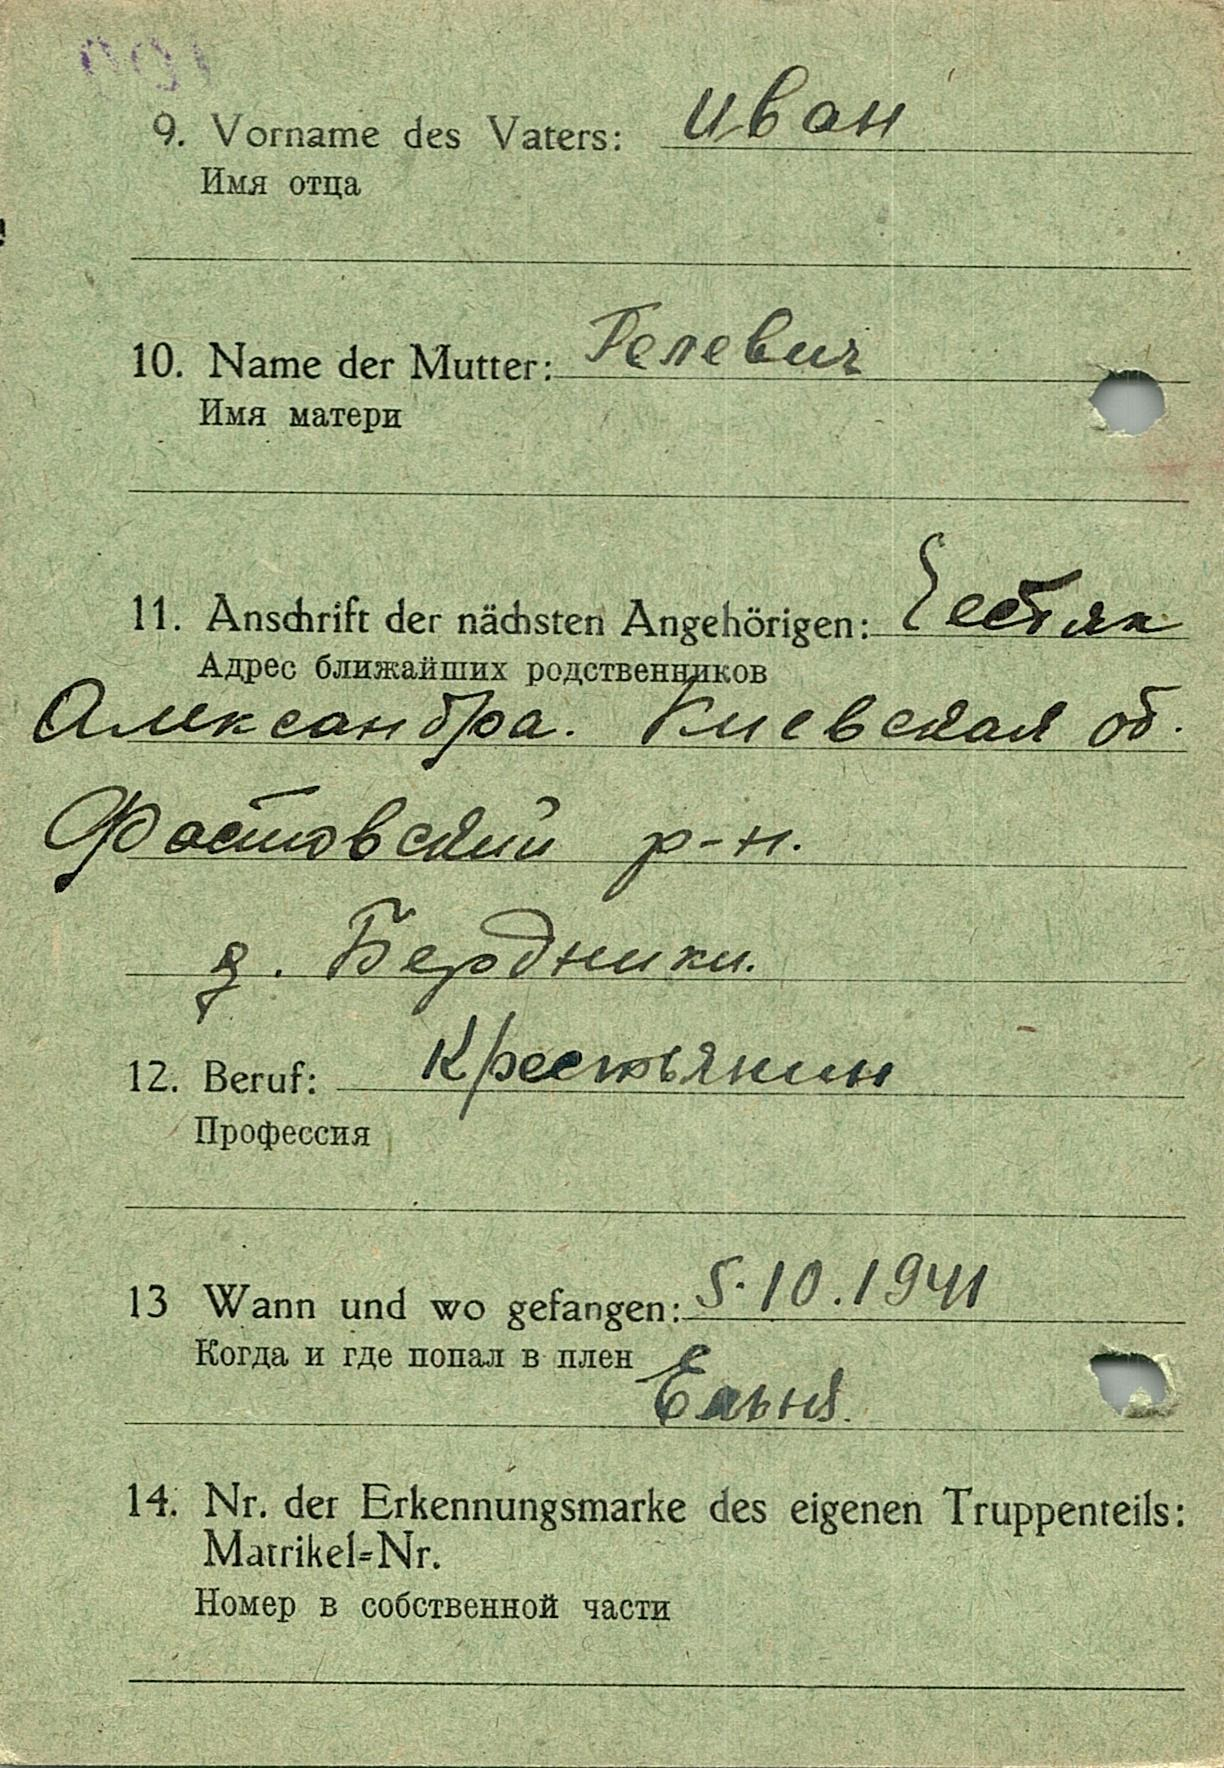 9. Vorname des Vaters: Иван
Имя отца
10. Name der Mutter: Гелевич
Имя матери
11. Anschrift der nächsten Angehörigen:
Адрес ближайших родственников
Александра. Киевская об.
Фастовский р-н.
д. Бердники.
12. Beruf: Крестьянин
Профессия
13 Wann und wo gefangen: 5.10.1941
Когда и где попал в плен
Ельня.
14. Nr. der Erkennungsmarke des eigenen Truppenteils:
Matrikel=Nr.
Номер в собственной части